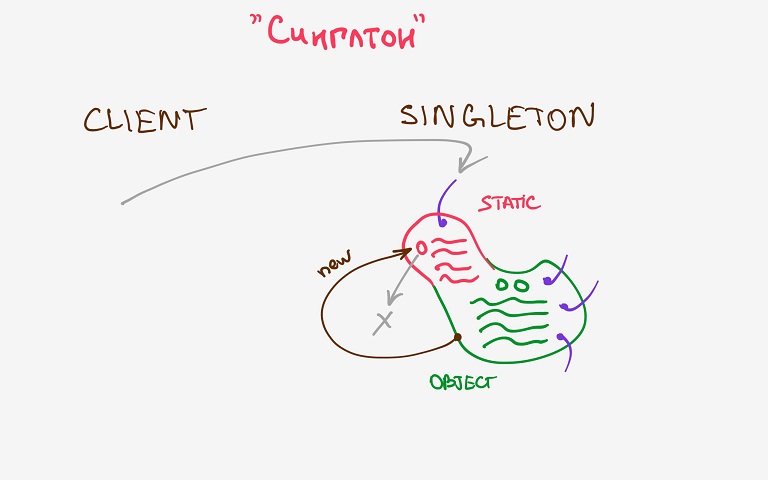 "Синглтон"
CLIENT
SINGLETON
STATIC
new
X
OBJECT